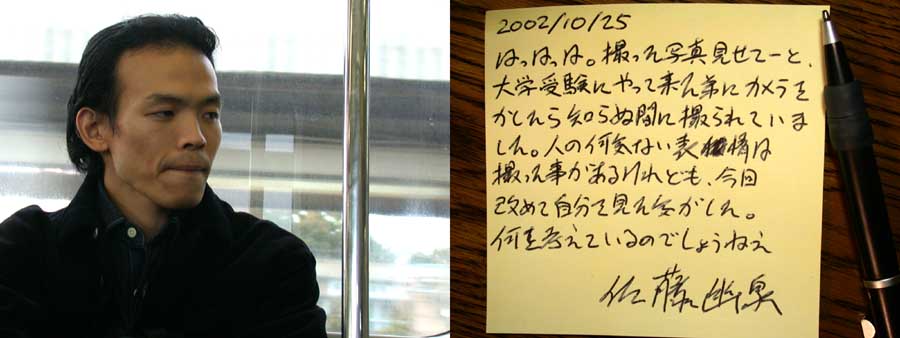 2002/10/25
はっはっは。撮った写真見せてーと、
大学受験にやって来た弟にカメラを
かしたら知らぬ間に撮られていま
した。人の何気ない表情は
撮った事があるけれども、今回
改めて自分を見た気がした。
何を考えているのでしょうねえ
佐藤